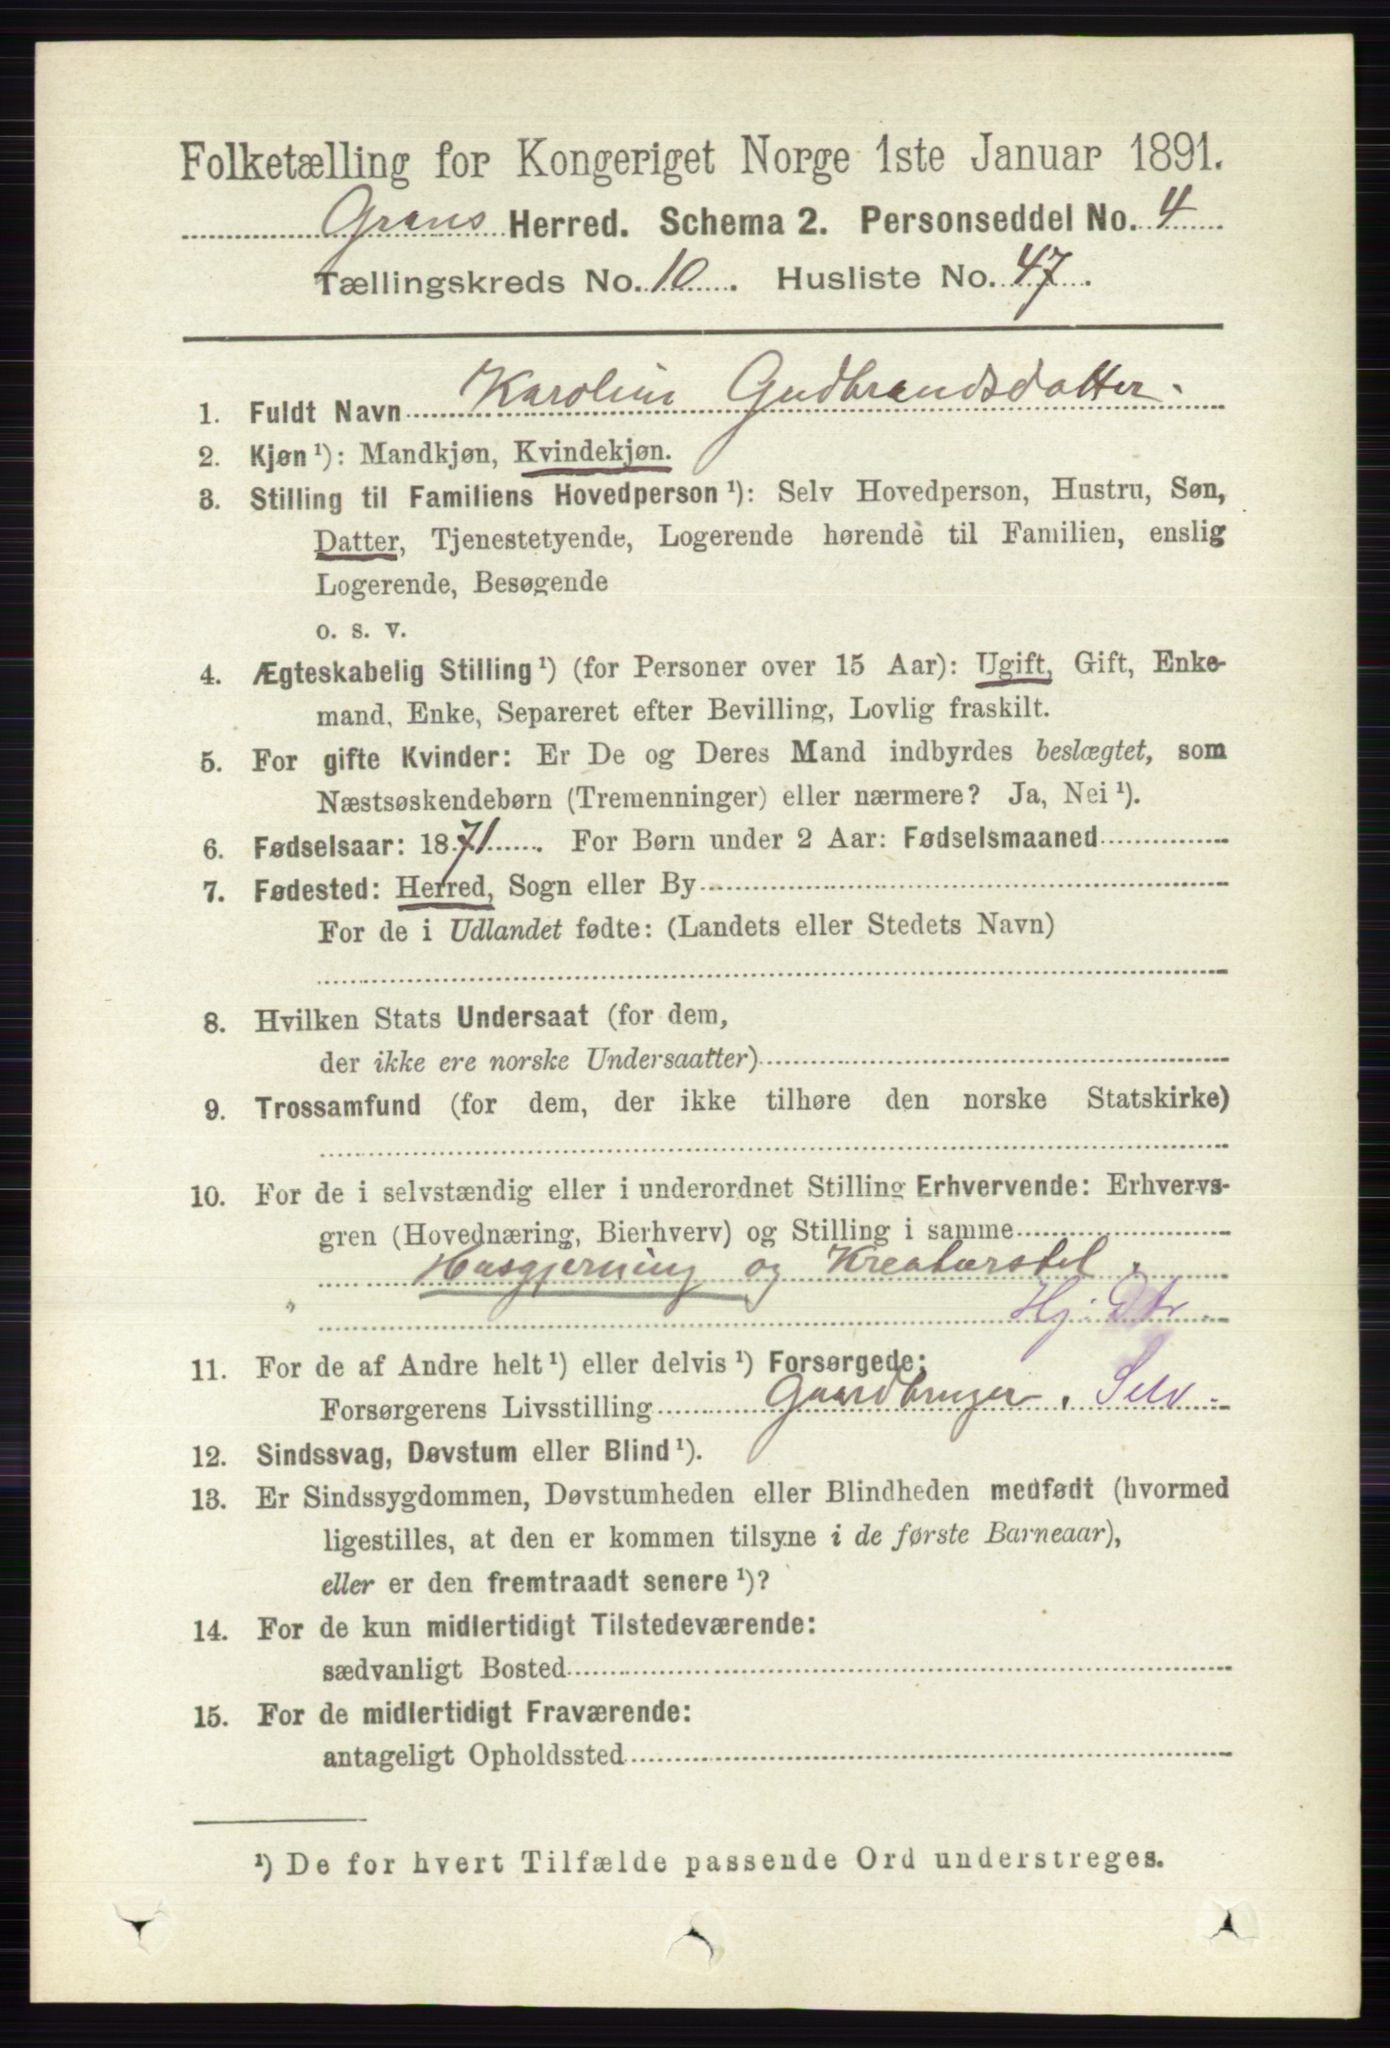 Folketælling for Kongeriget Norge 1ste Januar 1891.
Grans Herred. Schema 2. Personseddel No. 4
Tællingskreds No. 10. Husliste No. 47.
1. Fuldt Navn Karoline Gudbrandsdatter.
2. Kjøn ¹): Mandkjøn, Kvindekjøn.
3. Stilling til Familiens Hovedperson ¹): Selv Hovedperson, Hustru, Søn,
Datter, Tjenestetyende, Logerende hørende til Familien, enslig
Logerende, Besøgende
o. s. v.
4. Ægteskabelig Stilling ¹) (for Personer over 15 Aar): Ugift, Gift, Enke-
mand, Enke, Separeret efter Bevilling, Lovlig fraskilt.
5. For gifte Kvinder: Er De og Deres Mand indbyrdes beslægtet, som
Næstsøskendebørn (Tremenninger) eller nærmere? Ja, Nei ¹).
6. Fødselsaar: 1871. For Børn under 2 Aar: Fødselsmaaned
7. Fødested: Herred, Sogn eller By
For de i Udlandet fødte: (Landets eller Stedets Navn)
8. Hvilken Stats Undersaat (for dem,
der ikke ere norske Undersaatter)
9. Trossamfund (for dem, der ikke tilhøre den norske Statskirke)
10. For de i selvstændig eller i underordnet Stilling Erhvervende: Erhvervs-
gren (Hovednæring, Bierhverv) og Stilling i samme
Husgjerning og Kreaturstel,
Hj: Dtr.
11. For de af Andre helt ¹) eller delvis ¹) Forsørgede:
Forsørgerens Livsstilling Gaardbruger, Selv.
12. Sindssvag, Døvstum eller Blind ¹).
13. Er Sindssygdommen, Døvstumheden eller Blindheden medfødt (hvormed
ligestilles, at den er kommen tilsyne i de første Barneaar),
eller er den fremtraadt senere ¹)?
14. For de kun midlertidigt Tilstedeværende:
sædvanligt Bosted
15. For de midlertidigt Fraværende:
antageligt Opholdssted
¹) De for hvert Tilfælde passende Ord understreges.